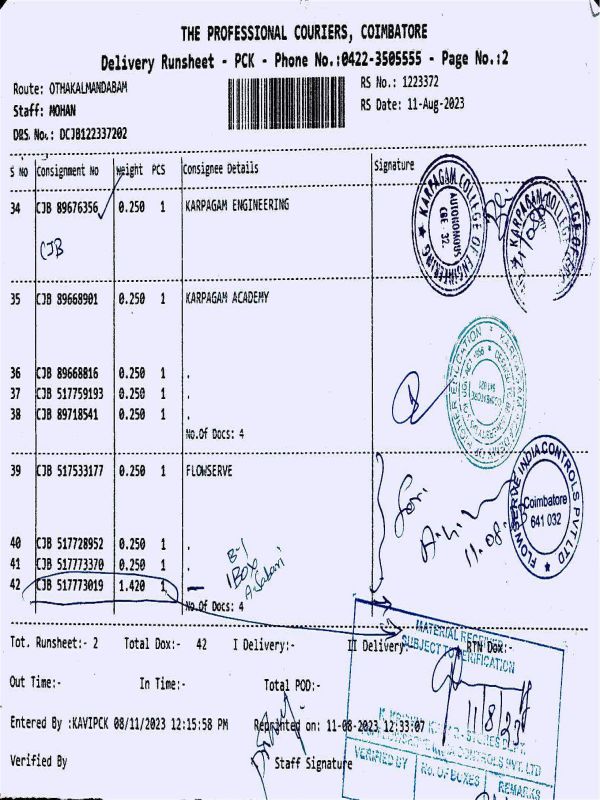 THE PROFESSIONAL COURIERS, COIMBATORE
Delivery Runsheet - PCK - Phone No.:0422-3505555 - Page No.:2
Route: OTHAKALMANDABAM
RS No.: 1223372
Staff: MOHAN
RS Date: 11-Aug-2023
DRS. No.: DCJB122337202
S NO Consignment No Weight PCS Consignee Details Signature
34 CJB 89676356 0.250 1 KARPAGAM ENGINEERING
CJB
KARPAGAM COLLEGE OF ENGINEERING
AUTONOMOUS
CBE 32.
35 CJB 89668901 0.250 1 KARPAGAM ACADEMY
36 CJB 89668816 0.250 1 .
37 CJB 517759193 0.250 1 .
38 CJB 89718541 0.250 1 .
No.Of Docs: 4
39 CJB 517533177 0.250 1 FLOWSERVE
FLOWSERVE INDIA CONTROLS PVT LTD
Coimbatore
641 032
11.08.
40 CJB 517728952 0.250 1 .
41 CJB 517773370 0.250 1 .
B-1
1 Box
42 CJB 517773019 1.420 1
No.Of Docs: 4
MATERIAL RECEIVED
SUBJECT TO VERIFICATION
Tot. Runsheet:- 2 Total Dox:- 42 I Delivery:- II Delivery:- RTN Dox:-
Out Time:- In Time:- Total POD:-
11 8 23
Entered By :KAVIPCK 08/11/2023 12:15:58 PM Reprinted on: 11-08-2023 12:33:07
FLOWSERVE INDIA CONTROLS PVT. LTD
Verified By Staff Signature
VERIFIED BY No. OF BOXES REMARKS